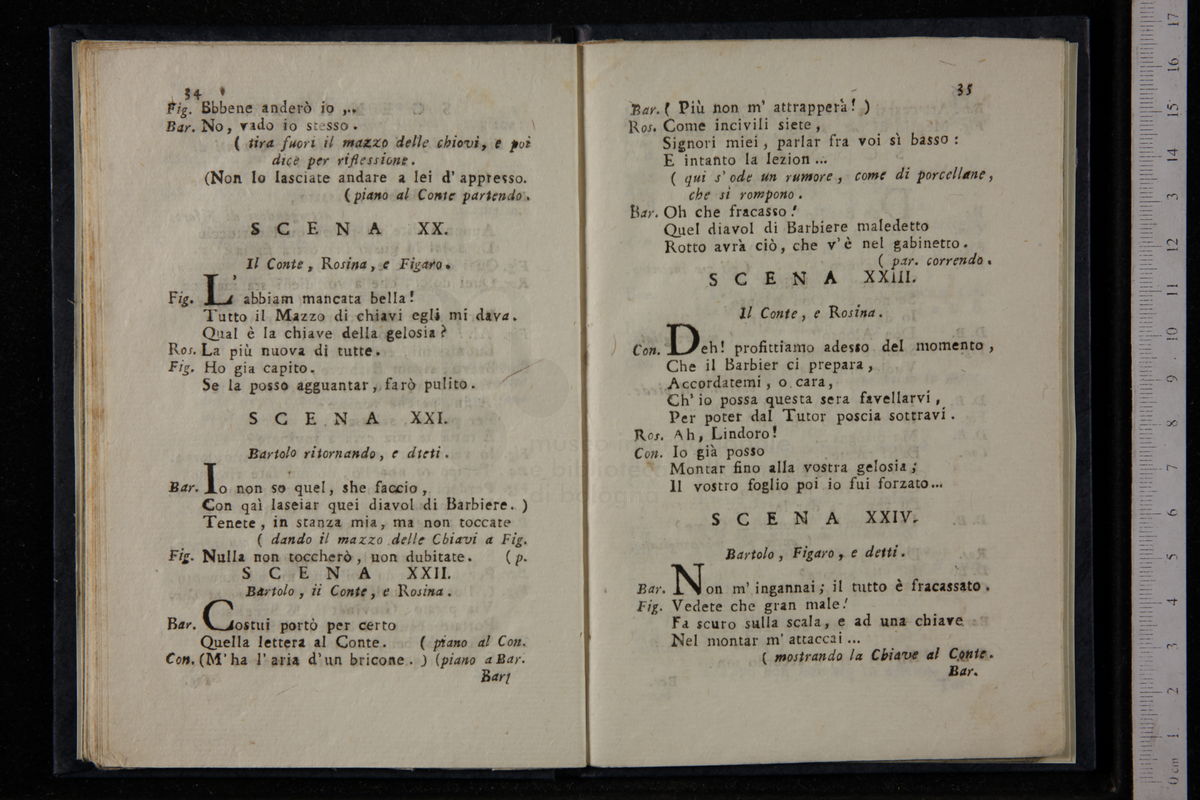 34
Fig. Ebbene anderò io ,..
Bar. No, vado io stesso.
( tira fuori il mazzo delle chiovi, e poi
dice per riflessione.
(Non lo lasciate andare a lei d' appresso.
(piano al Conte partendo.
SCENA XX.
Il Conte, Rosina, e Figaro.
Fig. L' abbiam mancata bella!
Tutto il Mazzo di chiavi egli mi dava.
Qual è la chiave della gelosia?
Ros. La più nuova di tutte.
Fig. Ho gia capito.
Se la posso agguantar, farò pulito.
SCENA XXI.
Bartolo ritornando, e dteti.
Bar. Io non so quel, she faccio,
Con qaì laseiar quei diavol di Barbiere. )
Tenete, in stanza mia, ma non toccate
( dando il mazzo delle Chiavi a Fig.
Fig. Nulla non toccherò, uon dubitate. (p.
SCENA XXII.
Bartolo, ii Conte, e Rosina.
Bar. Costui portò per certo
Quella lettera al Conte. ( piano al Con.
Con. (M' ha l' aria d' un bricone. ) (piano a Bar.
Bar.
35
Bar. ( Più non m' attrapperà! )
Ros. Come incivili siete,
Signori miei, parlar fra voi sì basso :
E intanto la lezion ...
( qui s' ode un rumore, come di porcellane,
che si rompono.
Bar. Oh che fracasso!
Quel diavol di Barbiere maledetto
Rotto avrà ciò, che v' è nel gabinetto.
( par. correndo.
SCENA XXIII.
Il Conte, e Rosina.
Con. Deh! profittiamo adesso del momento,
Che il Barbier ci prepara,
Accordatemi, o cara,
Ch' io possa questa sera favellarvi,
Per poter dal Tutor poscia sottravi.
Ros. Ah, Lindoro!
Con. Io già posso
Montar fino alla vostra gelosia;
Il vostro foglio poi io fui forzato...
SCENA XXIV.
Bartolo, Figaro, e detti.
Bar. Non m' ingannai; il tutto è fracassato.
Fig. Vedete che gran male!
Fa scuro sulla scala, e ad una chiave
Nel montar m' attaccai ...
( mostrando la Chiave al Conte.
Bar.